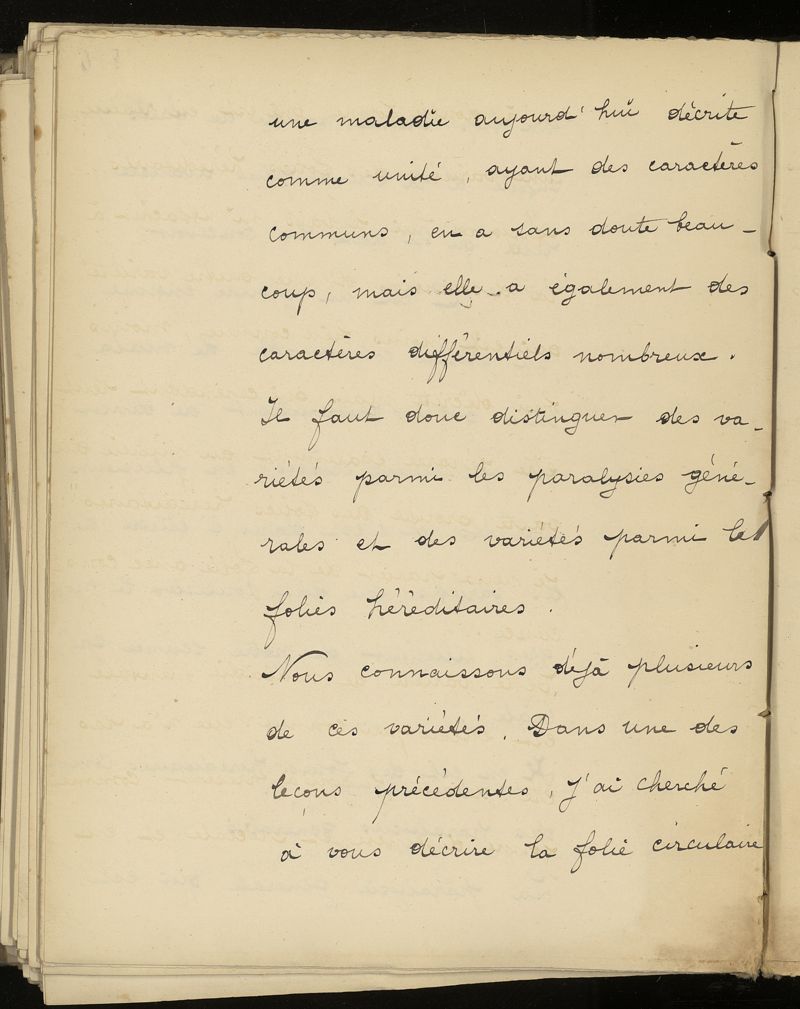 une maladie aujourd'hui décrite
comme unité, ayant des caractères
communs, en a sans doute beau-
coup, mais elle a également des
caractères différentiels nombreux.
Il faut donc distinguer des va-
riétés parmi les paralysies géné-
rales et des variétés parmi les
folies héréditaires.
Nous connaissons déjà plusieurs
de ces variétés. Dans une des
leçons précédentes, j'ai cherché
à vous décrire la folie circulaire